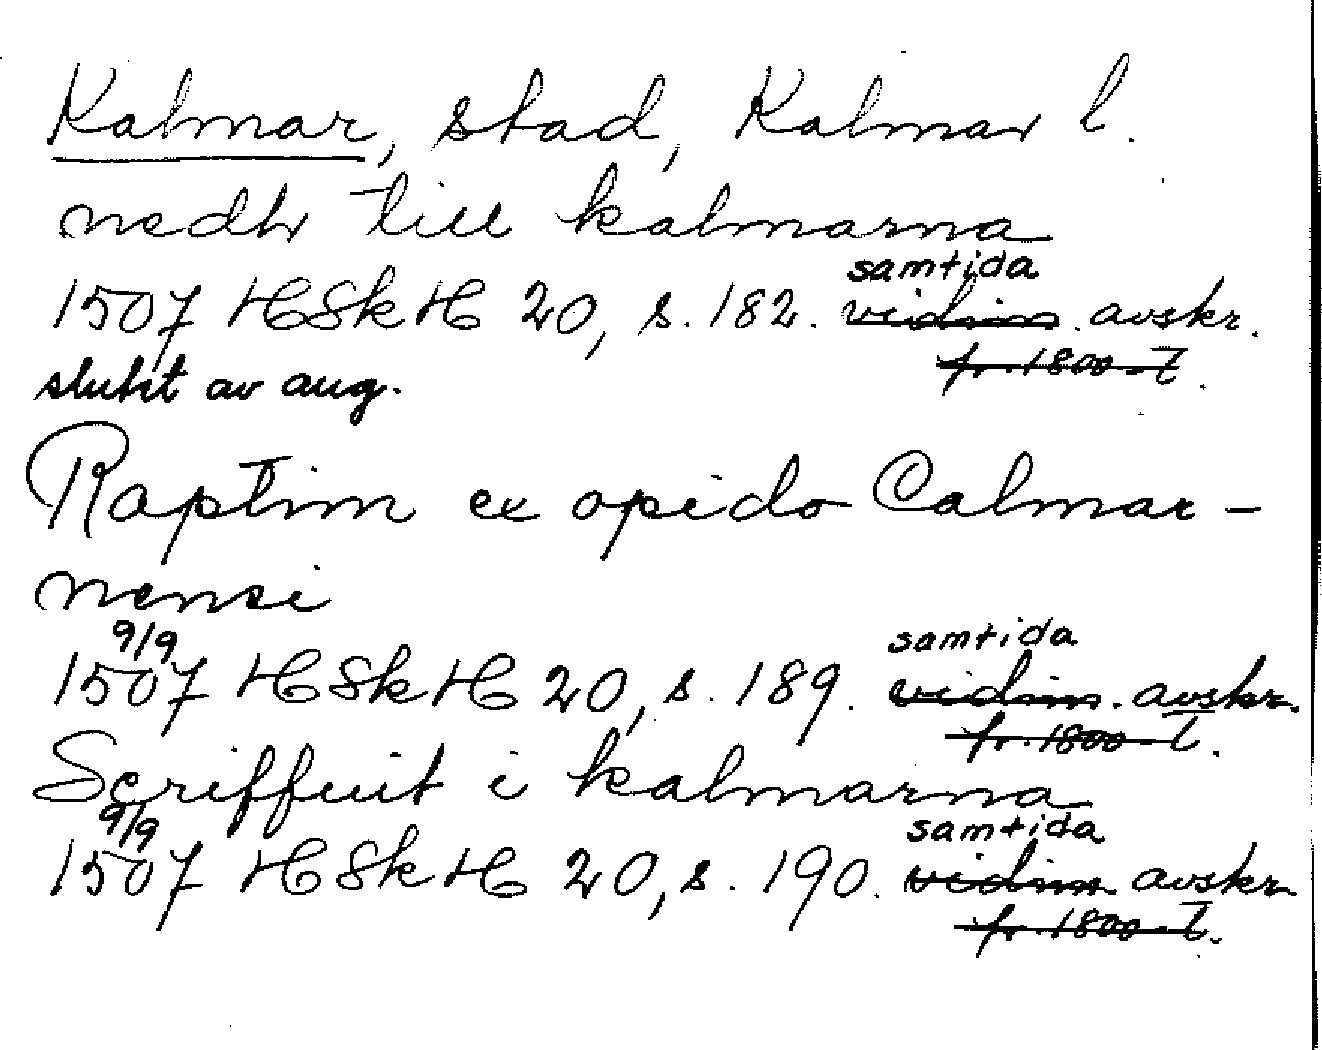 Kalmar, stad, Kalmar l.
nedhr till kalmarna
samtida
1507 HSkH 20, s. 182. vidim. avskr.
slutet av aug. fr. 1800-t.
Raptim ex opido Calmar-
nensi
9/9 samtida
1507 HSkH 20, s. 189. vidim. avskr.
fr. 1800-t.
Scriffuit i kalmarna
9/9 samtida
1507 HSkH 20, s. 190. vidim. avskr.
fr. 1800-t.